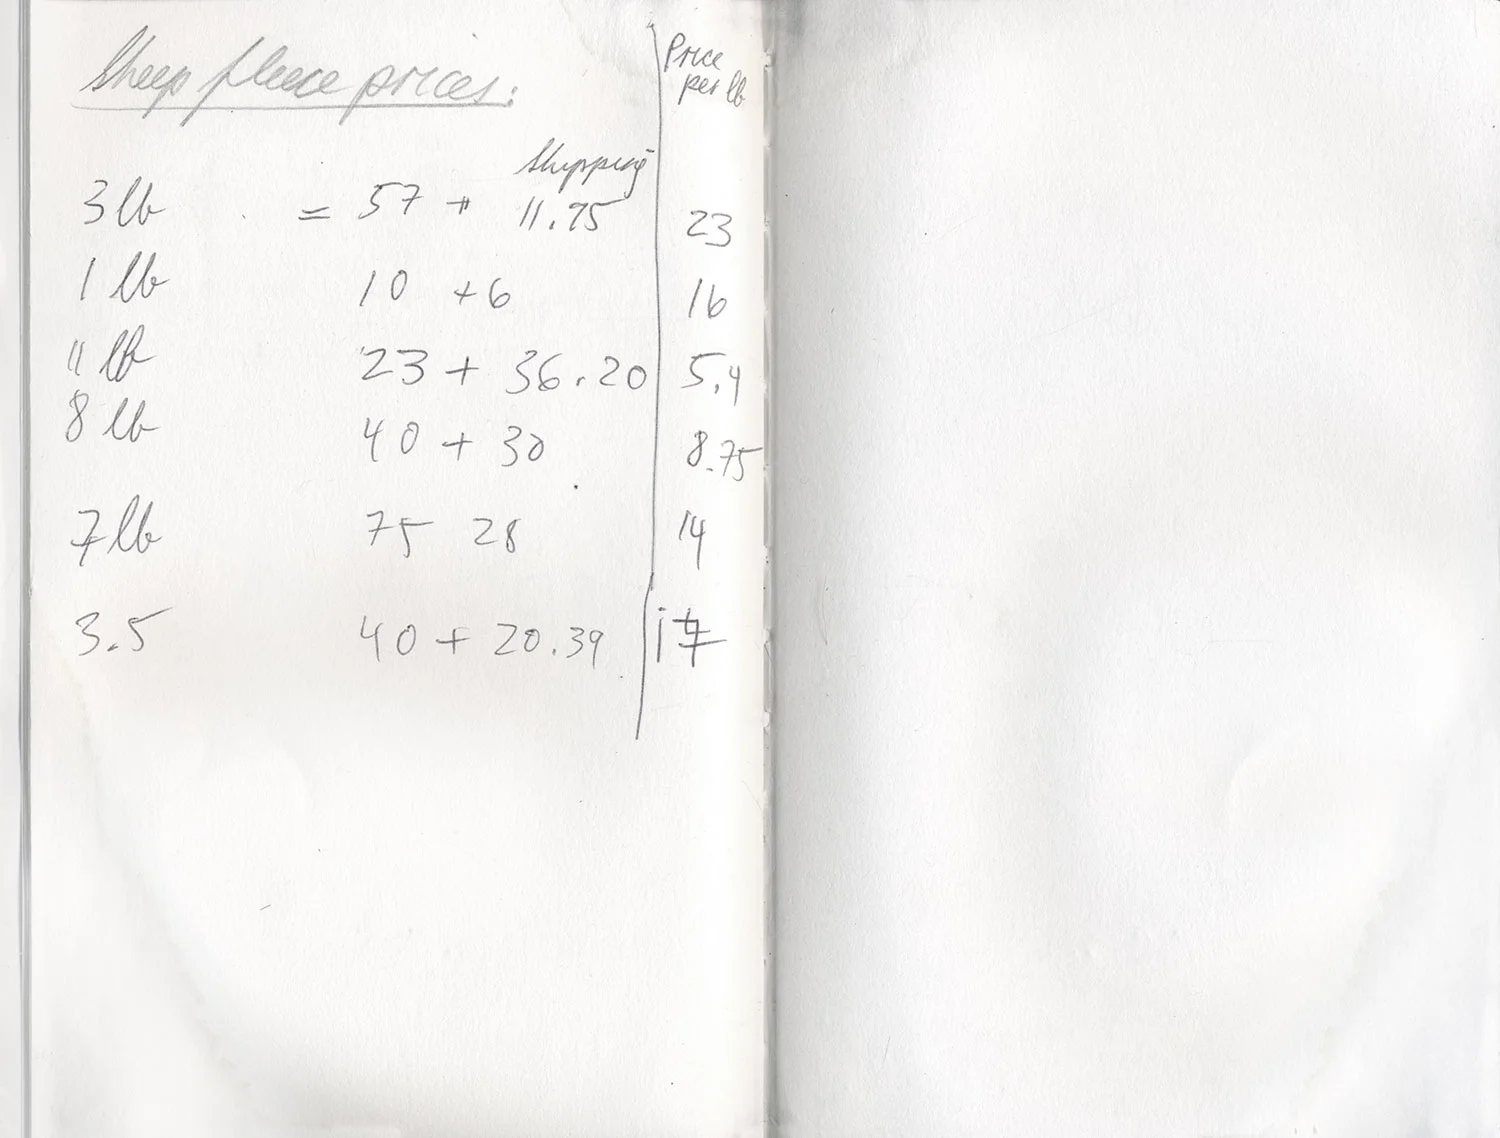 Sheep fleece prices:
Price
per lb
Shipping
3 lb = 57 + 11.75 23
1 lb 10 + 6 16
11 lb 23 + 36.20 5.4
8 lb 40 + 30 8.75
7 lb 75 28 14
3.5 40 + 20.39 17